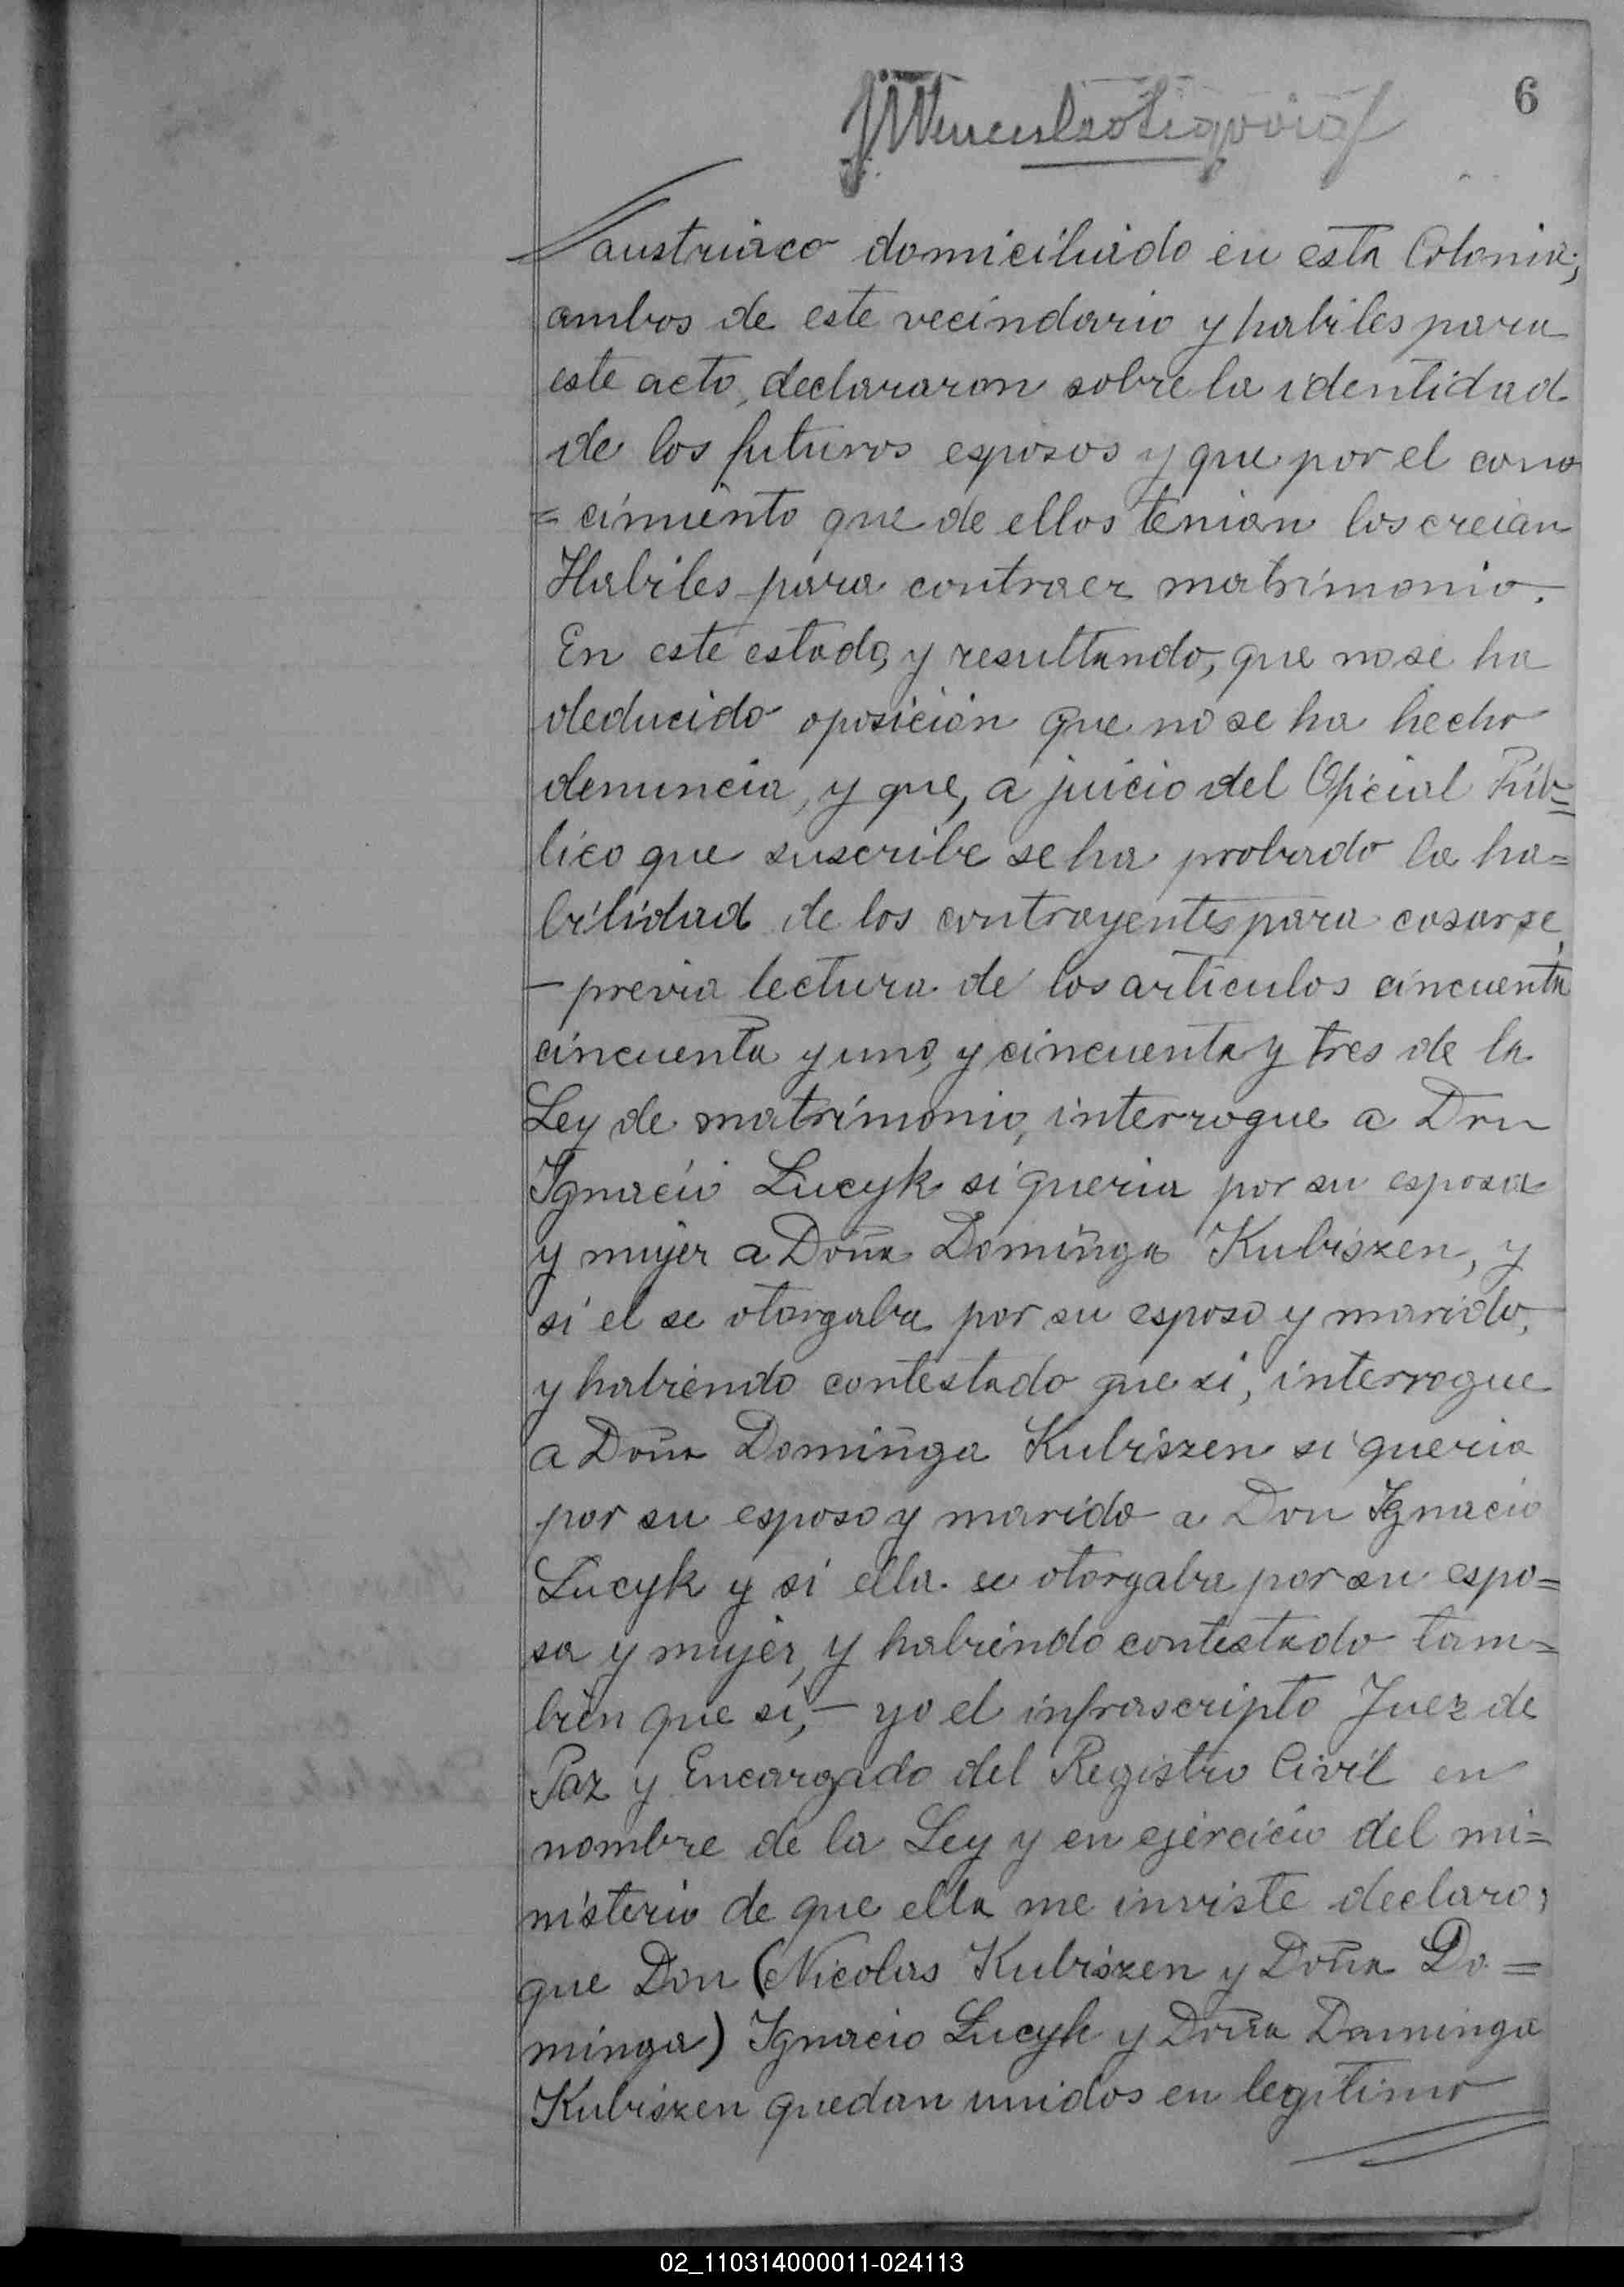 6
austriaco domiciliado en esta Colonia;
ambos de este vecindario y habiles para
este acto, declararon sobre la identidad
de los futuros esposos y que por el cono
= cimiento que de ellos tenian los creian
Habiles para contraer matrimonio.
En este estado, y resultando, que no se ha
deducido oposición que no se ha hecho
denuncia, y que, a juicio del Oficial Púb=
lico que suscribe se ha probado la ha=
bilidad de los contrayentes para casarse,
- previa lectura de los articulos cincuenta
cincuenta y uno, y cincuenta y tres de la
Ley de matrimonio, interrogue a Don
Ignacio Lucyk si queria por su esposa
y mujer a Doña Dominga Kubiszen, y
si el se otorgaba por su esposo y marido,
y habiendo contestado que si, interrogue
a Doña Dominga Kubiszen si queria
por su esposo y marido a Don Ignacio
Lucyk y si ella se otorgaba por su espo=
sa y mujer, y habiendo contestado tam=
bien que si, - yo el infrascripto Juez de
Paz y Encargado del Registro Civil en
nombre de la Ley y en ejercicio del mi=
nisterio de que ella me inviste declaro,
que Don (Nicolas Kubiszen y Doña Do=
minga) Ignacio Lucyk y Doña Dominga
Kubiszen quedan unidos en legitimo
02_110314000011-024113